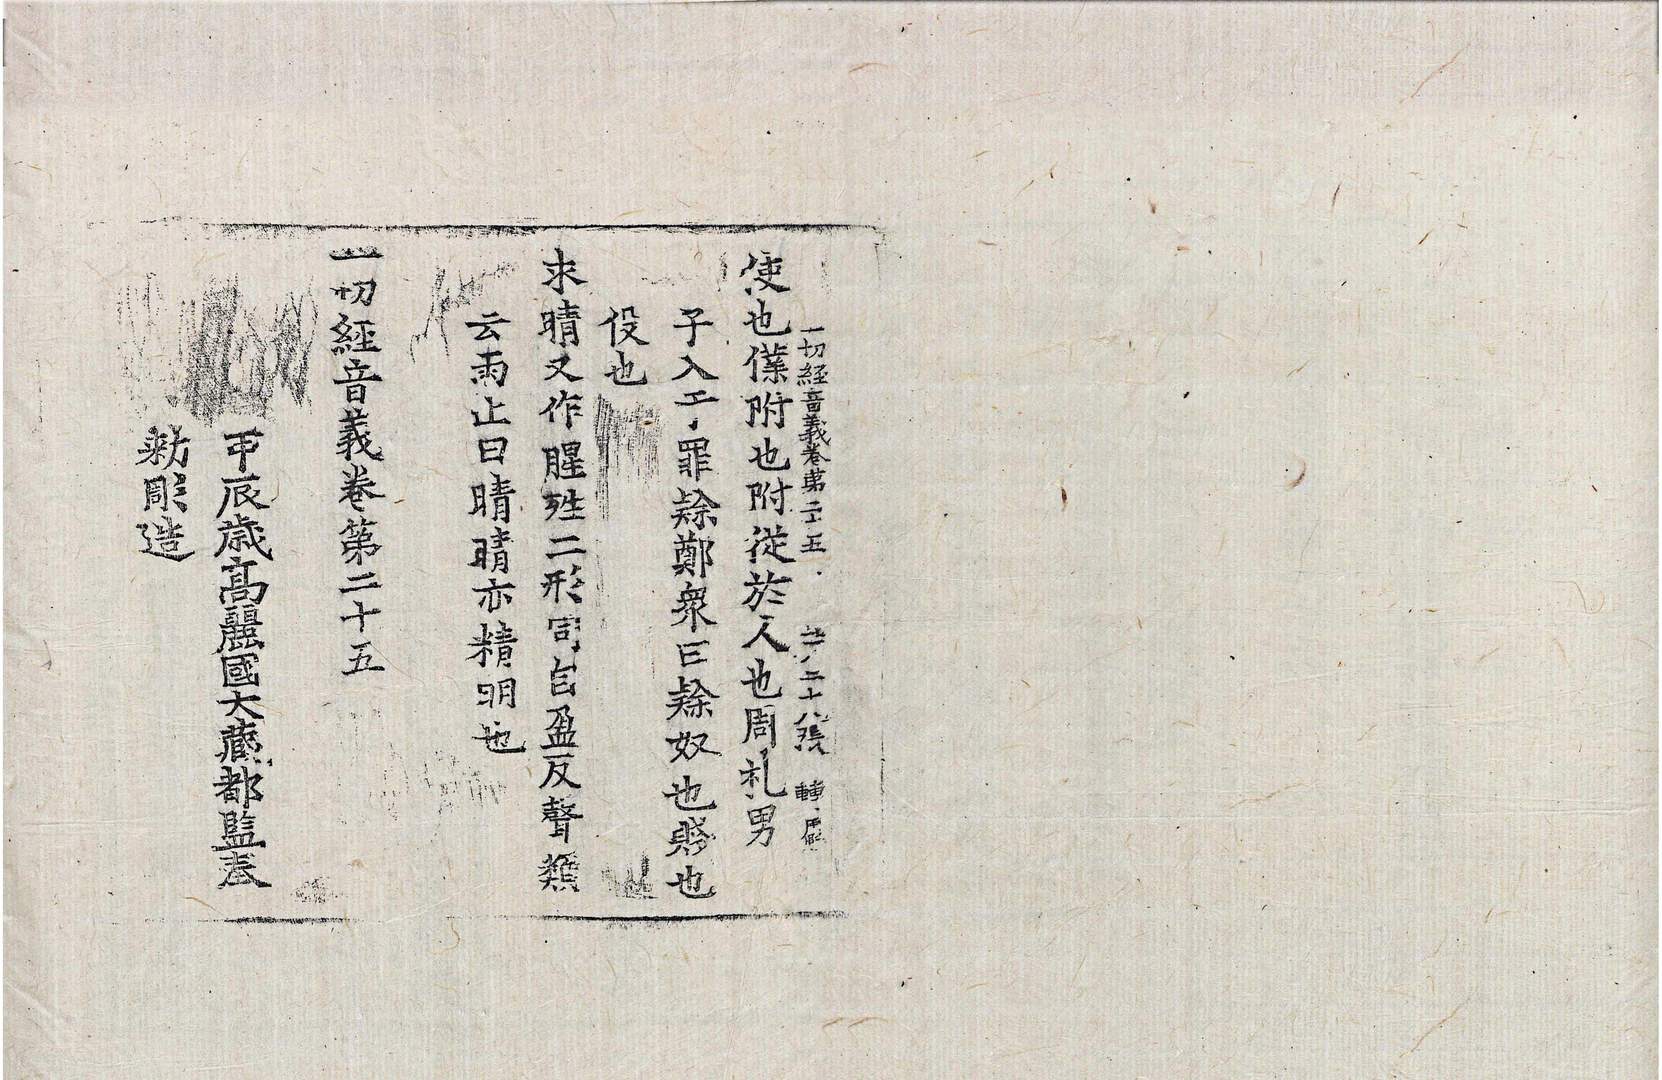 一切経音義卷第二十五 第二十八張 轉
使也僕附也附從於人也周礼男
子入于罪䘮鄭衆曰䘮奴也䝱也
役也
求晴又作腥殅二形同自盈反聲類
云雨止曰晴晴亦精明也
一切經音義卷第二十五
甲辰歳髙麗國大藏都監奉
勅彫造